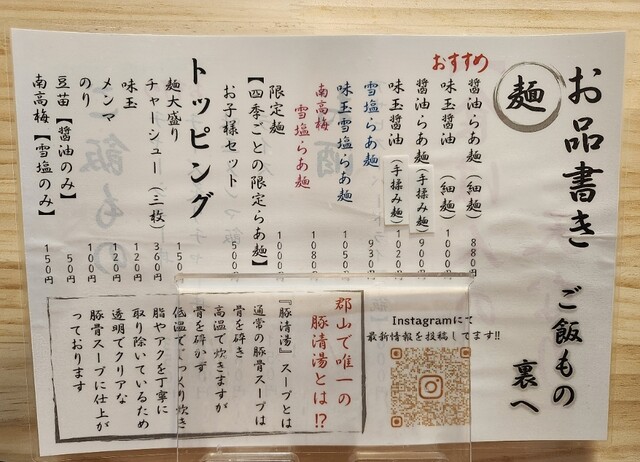 お品書き
ご飯もの 裏へ
麺
おすすめ
醤油らあ麺（細麺） 880円
味玉醤油（細麺） 1000円
醤油らあ麺（手揉み麺） 900円
味玉醤油（手揉み麺） 1020円
雪塩らあ麺 930円
味玉雪塩らあ麺 1050円
南高梅
雪塩らあ麺 1080円
限定麺 1000円
【四季ごとの限定らあ麺】
お子様セット 500円
トッピング
麺大盛り 150
チャーシュー（三枚） 360円
味玉 120円
メンマ 120円
のり 100円
豆苗【醤油のみ】 50円
南高梅【雪塩のみ】 150円
Instagramにて
最新情報を投稿してます!!
郡山で唯一の
豚清湯とは!?
『豚清湯』スープとは
通常の豚骨スープは
骨を砕き
高温で炊きますが
骨を砕かず
低温でじっくり炊き
脂やアクを丁寧に
取り除いているため
透明でクリアな
豚骨スープに仕上が
っております